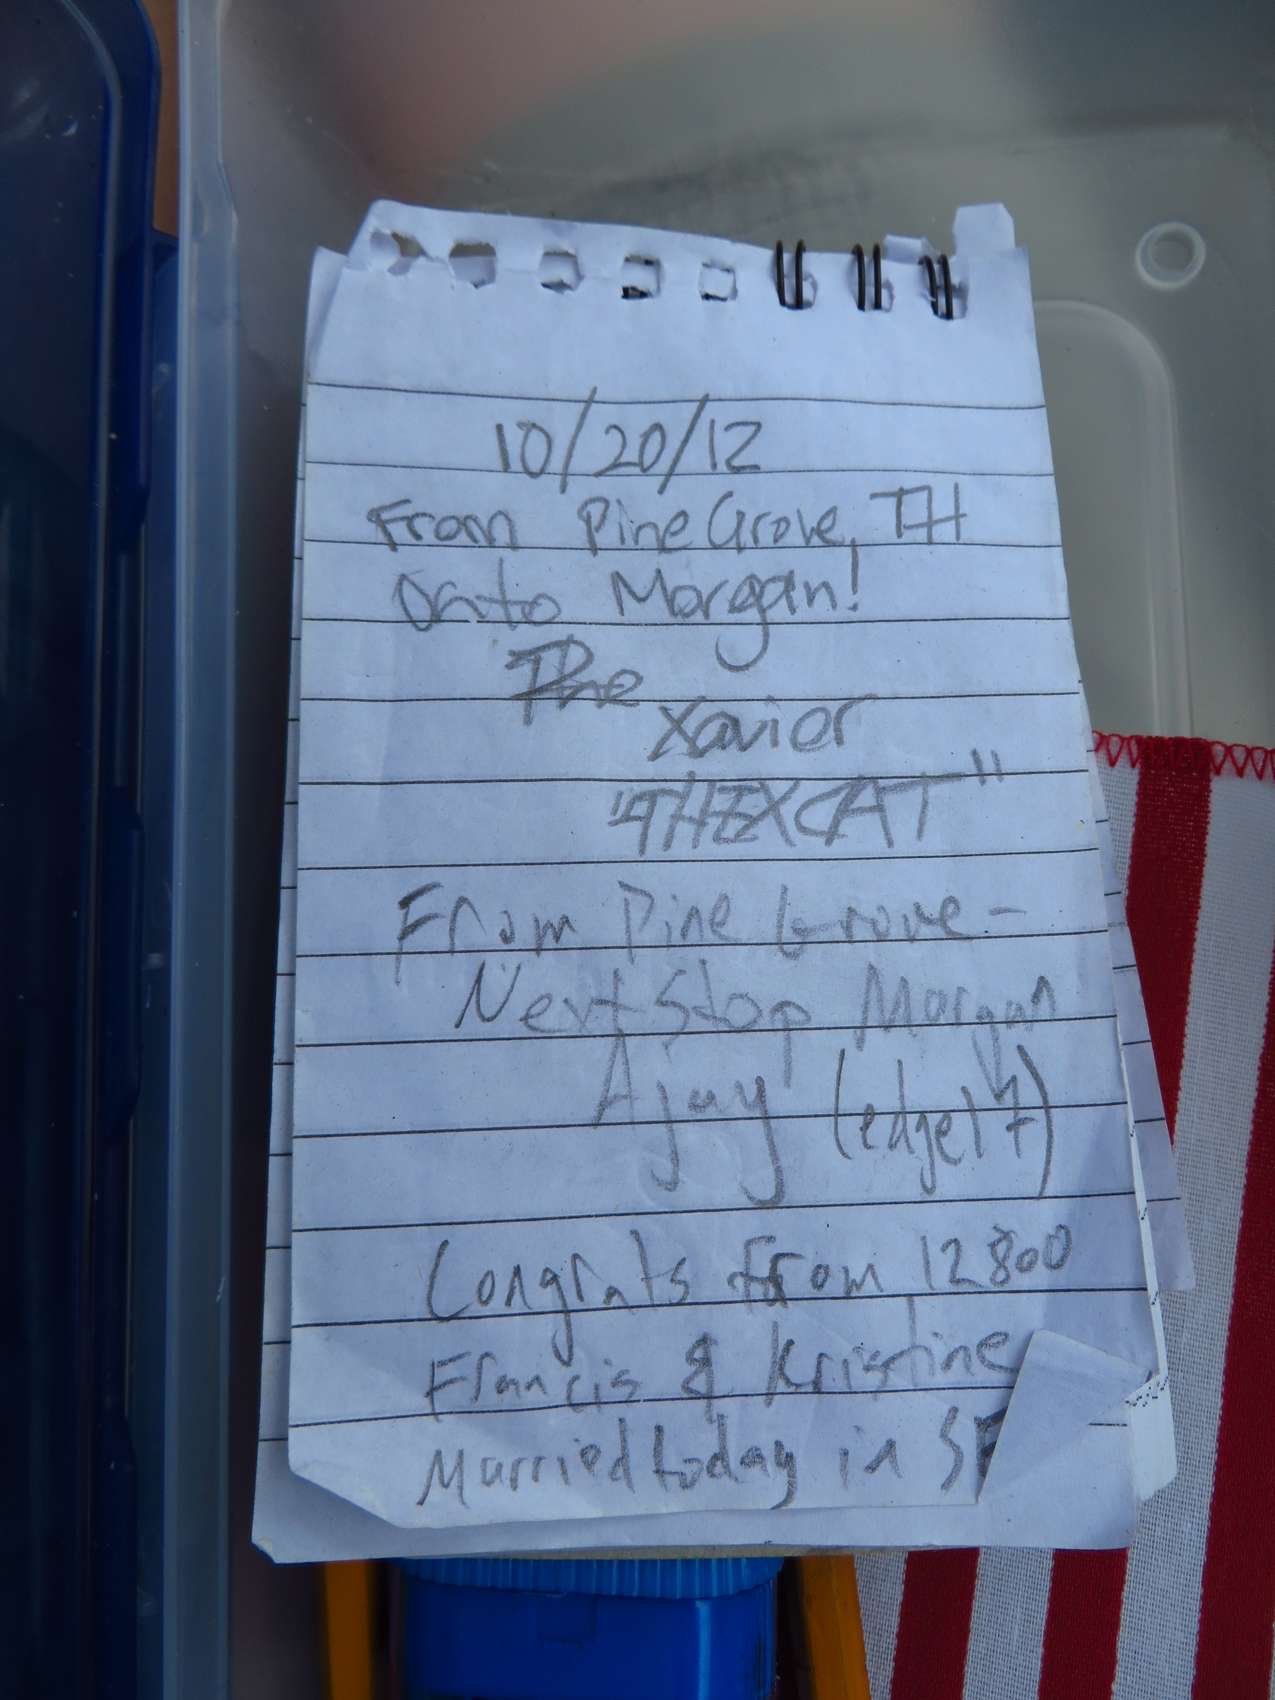 10/20/12
From Pine Grove, TH
Onto Morgan!
The
Xavier
"THEXCAT"
From Pine Grove -
Next Stop Morgan
Ajay (edge17)
Congrats from 12800
Francis & Kristine
Married today in SF